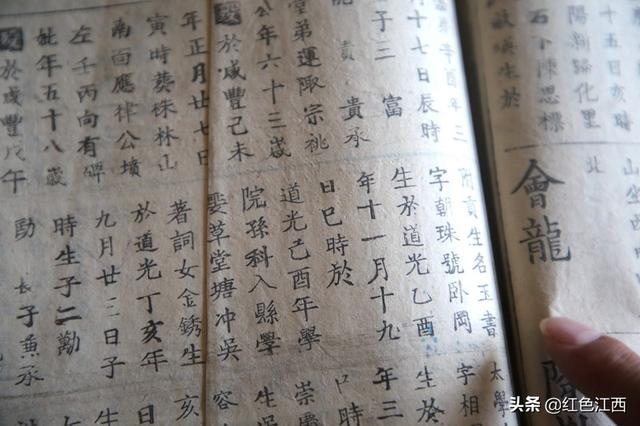 十五日亥時
陽新歸化里
石卜陳思標
生於
山坐
北
會龍
十七日辰時
子三 富
貴 貴承
堂弟運陬宗祧
公年六十三歲
娶於咸豐己未
年正月廿七日
寅時葬株林山
南面應律公墳
左壬丙向有碑
妣年五十八歲
於咸豐戊午
附貢生名玉書
字朝珠號卧岡
生於道光乙酉
年十一月十九
日巳時於
道光己酉年學
院孫科入縣學
娶草堂塘冲吳
著詞女金銹生
於道光丁亥年
九月廿三日子
時生子二勱
勛 長子兼承
太學
字相
生於
年三
口時
崇
生吳
容
亥
日
头条 @红色江西